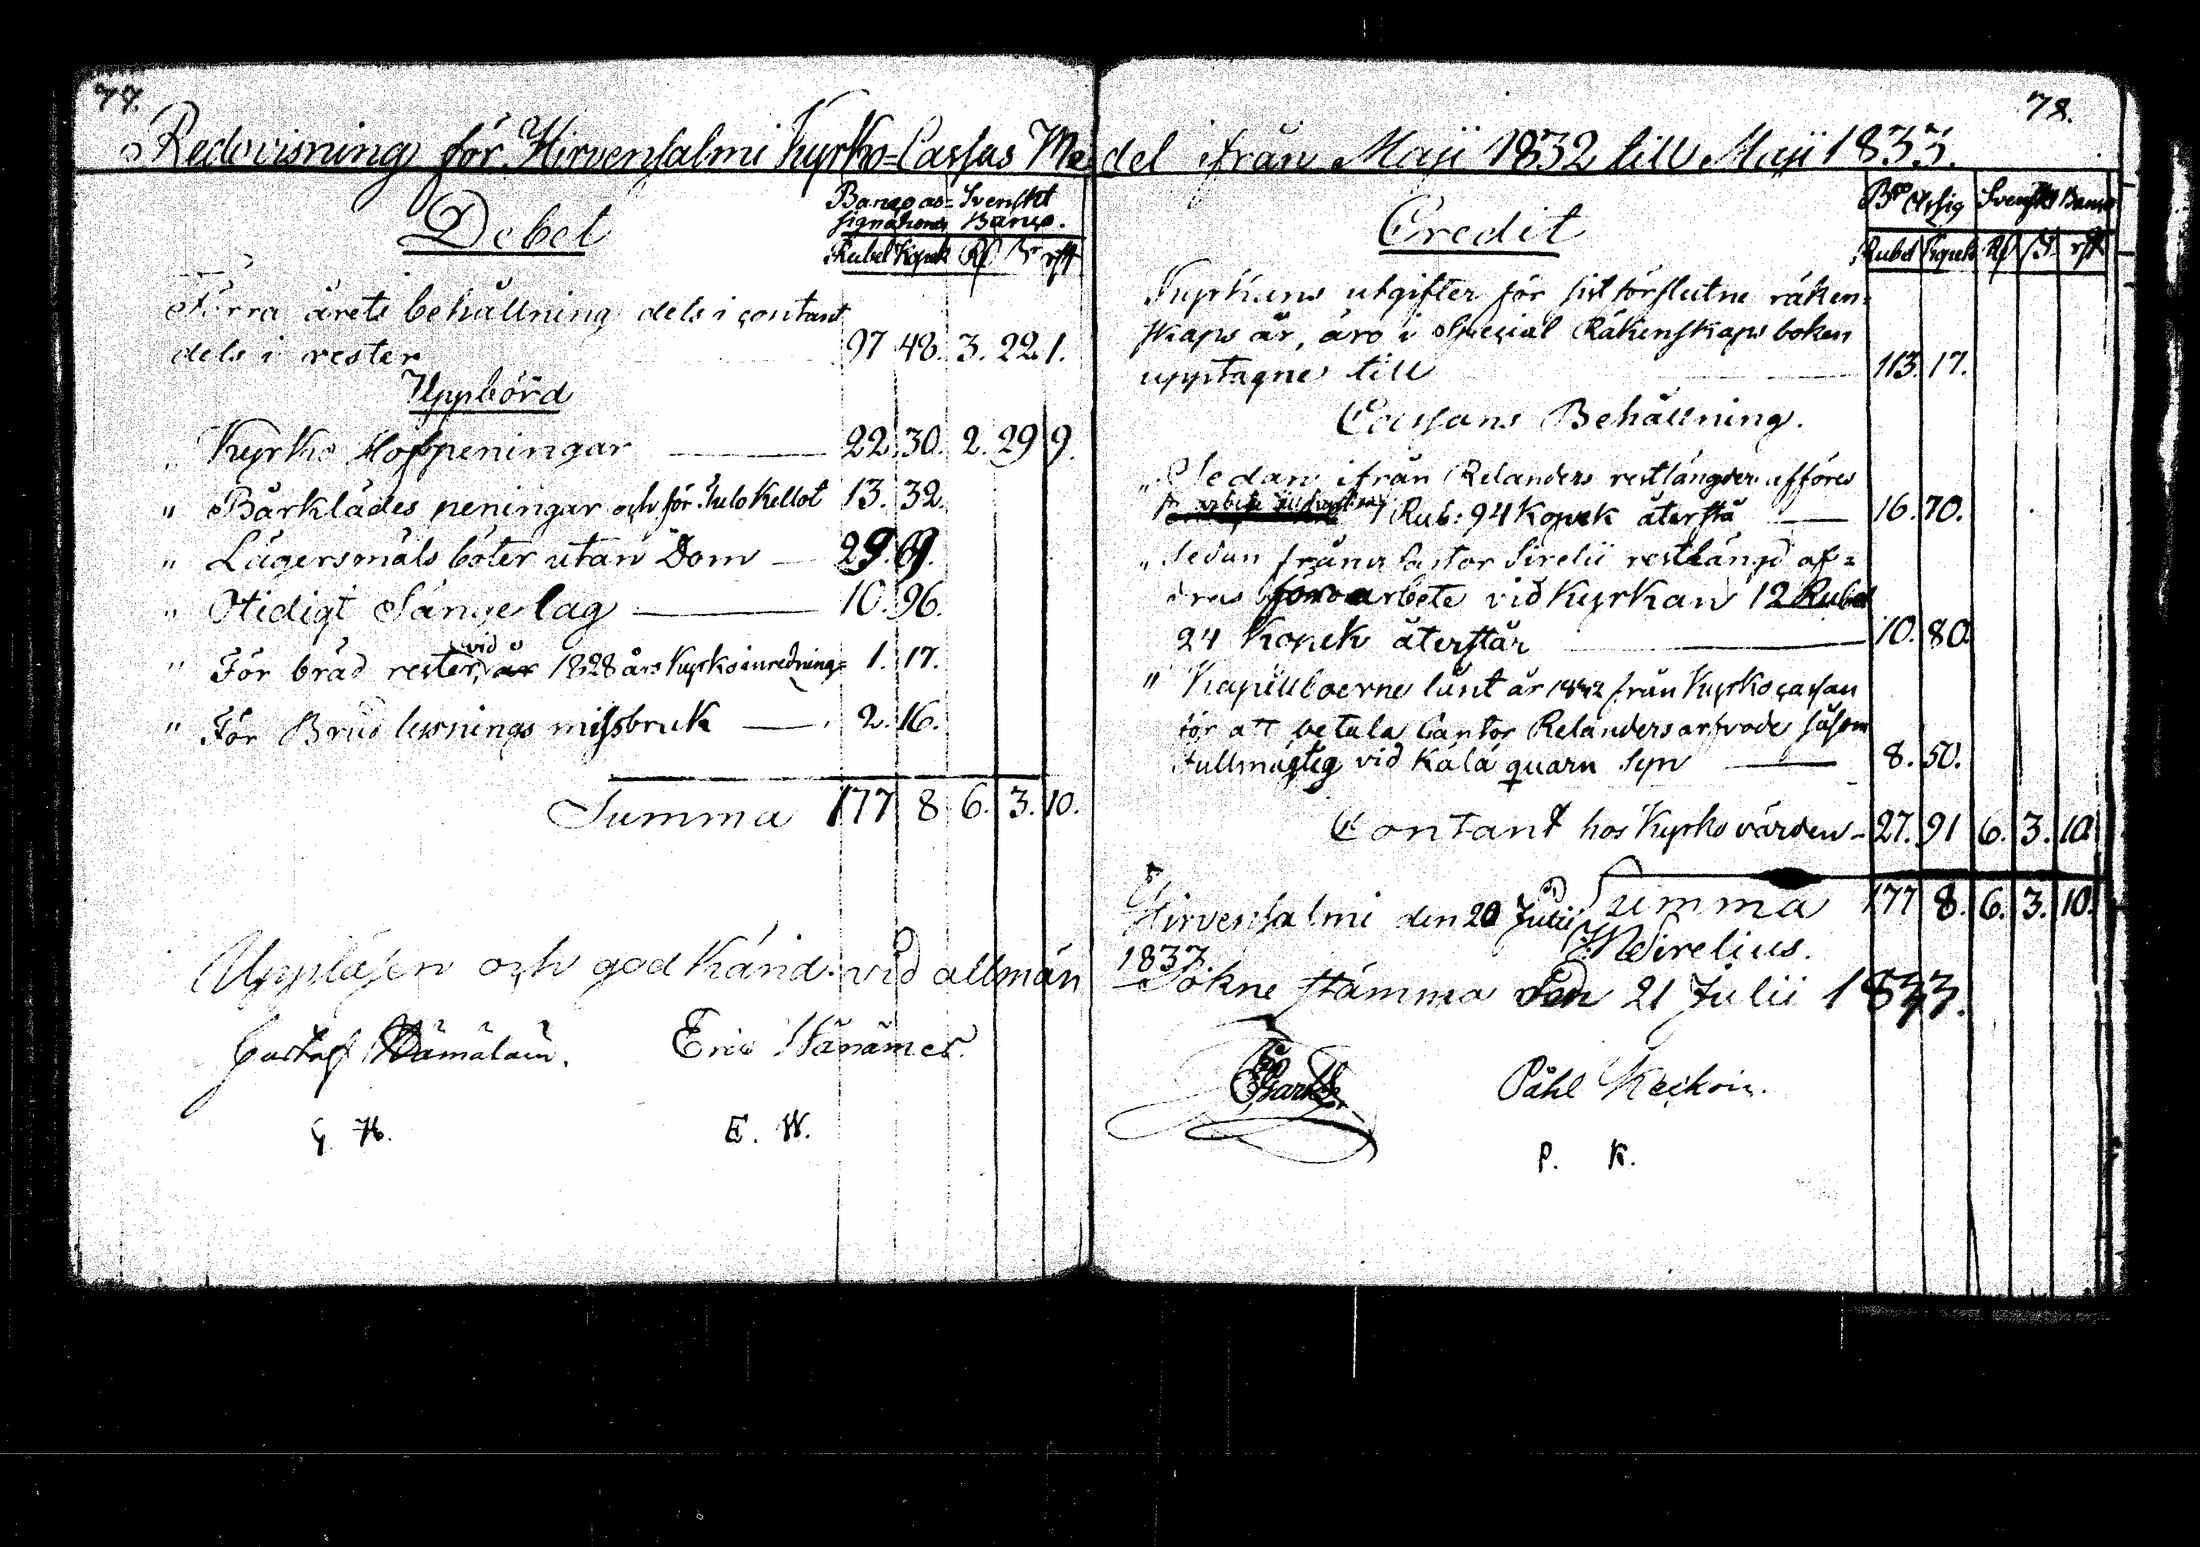 77.
Redovisning för Hirvensalmi Kyrko-Cassas Me
Debet
Banco as= Svenskt
signationer Banco.
Rubel Kopek Rd s rst
Förra årets behållning dels i contant
dels i rester 97 48. 3. 22. 1.
Uppbörd
" Kyrko Hofpeningar 22. 30. 2. 29 9.
" Bårklädes peningar och för Sielo Kellot 13. 32.
" Lägersmåls böter utan Dom 29. 69.
" Otidigt Sängelag 10. 96.
" För bräd rester vid år 1828 års Kyrko inredning= 1. 17.
" För Brud lysnings missbruk 2. 16.
Summa 177 8 6. 3. 10.
Uppläsen och godkänd vid allmän
Gustaf Hämäläin. Eric Wänänen.
G. H. E. W.
78.
del ifrån Maji 1832 till Maji 1833.
Credit
Bco Assig Svenskt Banco
Rubel Kopek Rd s rst
Kyrkans utgifter för sist förflutne räken=
skaps år, äro i Special Räkenskaps boken
upptagne till 113. 17.
Cassans Behållning.
" Sedan ifrån Relanders restlängder afföres
för arbete 1 Rub: 94 Kopek återstå 16. 70.
" Sedan från Pastor Sirelii restlängd af=
dras för arbete vid Kyrkan 12 Rubel
24 Kopek återstår 10. 80.
" Kapellboerne lånt år 1832 från Kyrko cassan
för att betala Cantor Relanders arfvode såsom
Fullmägtig vid Kälä quarn Syn 8. 50.
Contant hos Kyrko värden 27. 91 6. 3. 10.
Summa 177 8. 6. 3. 10.
Hirvensalmi den 20 Julii
1833. Sirelius.
Sokne stämma den 21 Julii 1833.
Påhl Keckoin.
P. K.